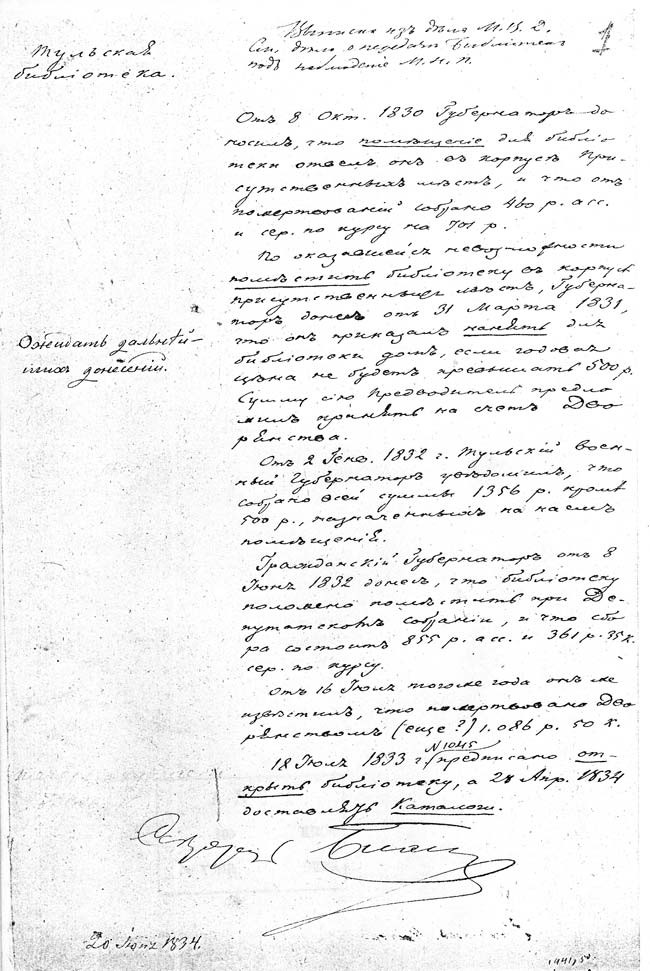 Выписка изъ дѣла М.В.Д.
См. дѣло о передачѣ Библіотекъ
подъ наблюденіе М.Н.П.
1
Тульская
библіотека.
Отъ 8 Окт. 1830 Губернаторъ до
носилъ, что помѣщеніе для библіо
теки отвелъ онъ въ корпусѣ При-
сутственныхъ мѣстъ, и что отъ
пожертвованій собрано 460 р. асс.
и сер. по курсу на 701 р.
По оказавшейся невозможности
помѣстить библіотеку въ корпусѣ
присутственныхъ мѣстъ, Губерна-
торъ донесъ отъ 31 Марта 1831,
что онъ приказалъ нанять для
библіотеки домъ, если годовая
цѣна не будетъ превышать 500 р.
Сумму сію Предводитель предло
жилъ принять на счетъ Дво
рянства.
Ожидать дальнѣй-
шихъ донесеній.
Отъ 2 Генв. 1832 г. Тульскій Воен-
ный Губернаторъ увѣдомилъ, что
собрано всей суммы 1356 р. кромѣ
500 р., назначенныхъ на наемъ
помѣщенія.
Гражданскій Губернаторъ отъ 8
Іюня 1832 донесъ, что библіотеку
положено помѣстить при Де-
путатскомъ собраніи, и что сбо
ра состоитъ 855 р. асс. и 361 р. 35 к.
сер. по курсу.
Отъ 16 Іюля того же года онъ же
извѣстилъ, что пожертвовано Дво
рянствомъ (еще?) 1.086 р. 50 к.
18 Іюля 1833 г. N 1045 предписано от-
крыть библіотеку, а 28 Апр. 1834
доставлены Каталоги.
20 Іюня 1834.